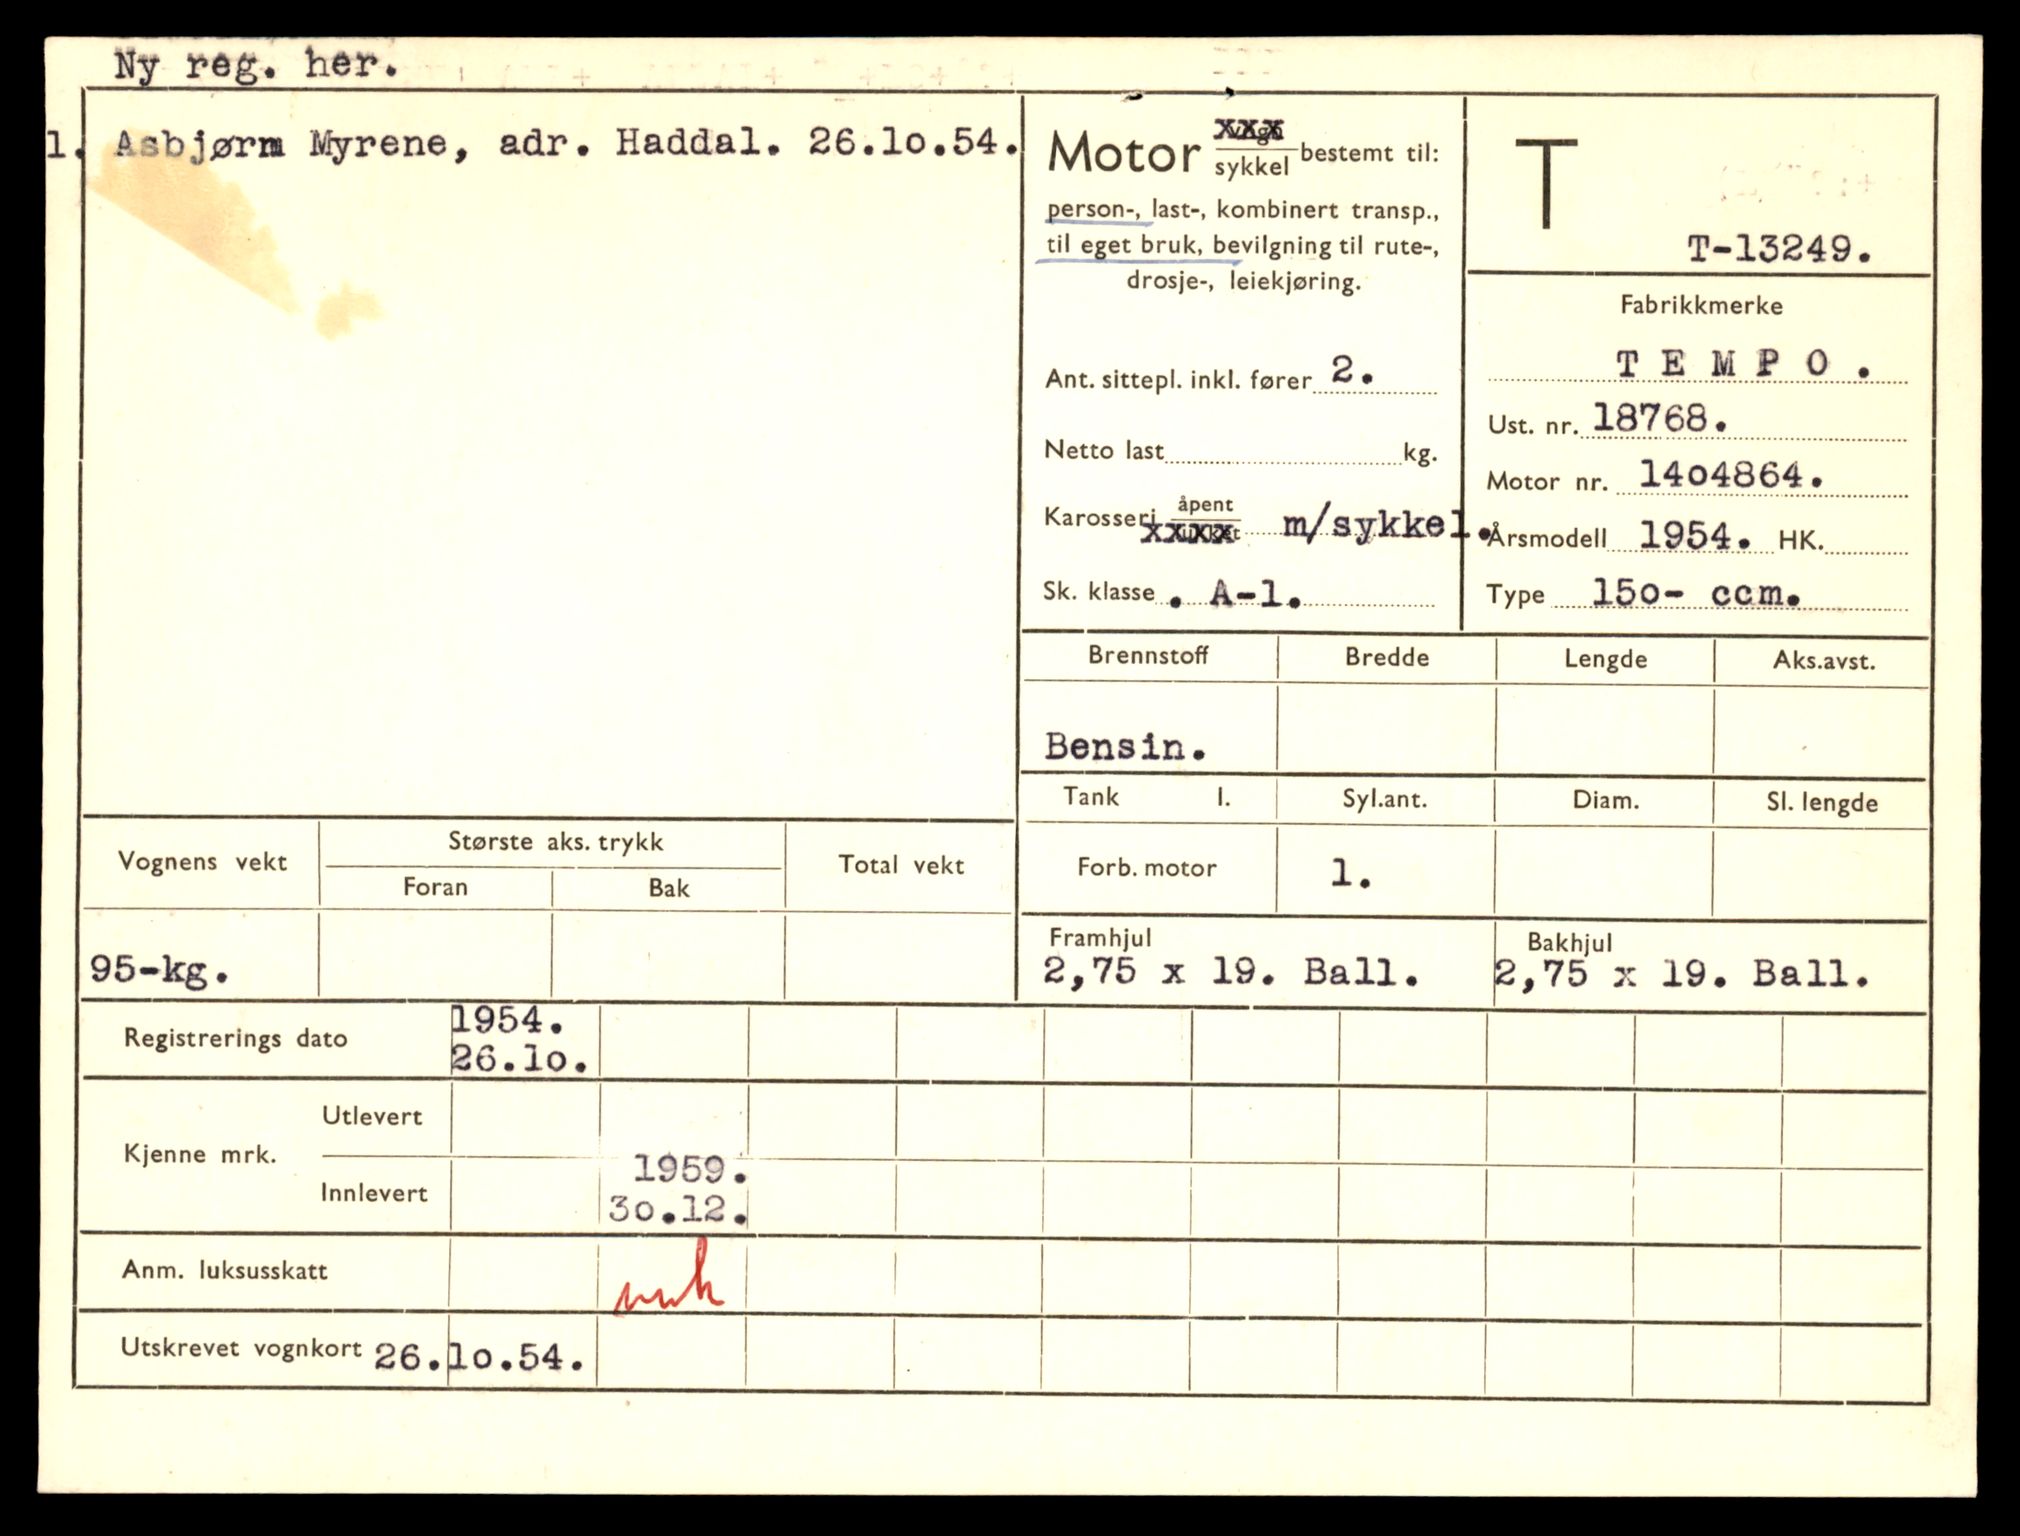 Ny reg. her.
1. Asbjørn Myrene, adr. Haddal. 26.1o.54.
Motor xxx sykkel bestemt til:
person-, last-, kombinert transp.,
til eget bruk, bevilgning til rute-,
drosje-, leiekjøring.
Ant. sittepl. inkl. fører 2.
Netto last kg.
Karosseri åpent xxxx m/sykkel.
Sk. klasse . A-1.
T
T-13249.
Fabrikkmerke
T E M P O .
Ust. nr. 18768.
Motor nr. 14o4864.
Årsmodell 1954. HK.
Type 15o- ccm.
Brennstoff Bredde Lengde Aks.avst.
Bensin.
Tank l. Syl.ant. Diam. Sl. lengde
Forb. motor 1.
Vognens vekt Største aks. trykk Total vekt
Foran Bak
95-kg.
Framhjul Bakhjul
2,75 x 19. Ball. 2,75 x 19. Ball.
Registrerings dato 1954.
26.1o.
Kjenne mrk. Utlevert
Innlevert 1959.
3o.12.
Anm. luksusskatt
Utskrevet vognkort 26.1o.54.